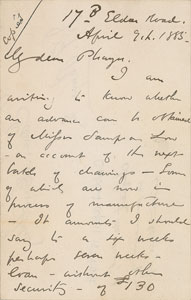 Copied
17B Elden Road.
April 9th. 1885.
My dear Thayer.
I am
writing to know whether
an advance can be obtained
of Messrs Sampson Low
on account of the next
batch of drawings — Some
of which are now in
process of manufacture
— It amounts I should
say to a six weeks
perhaps seven weeks
loan — without other
security — of £130